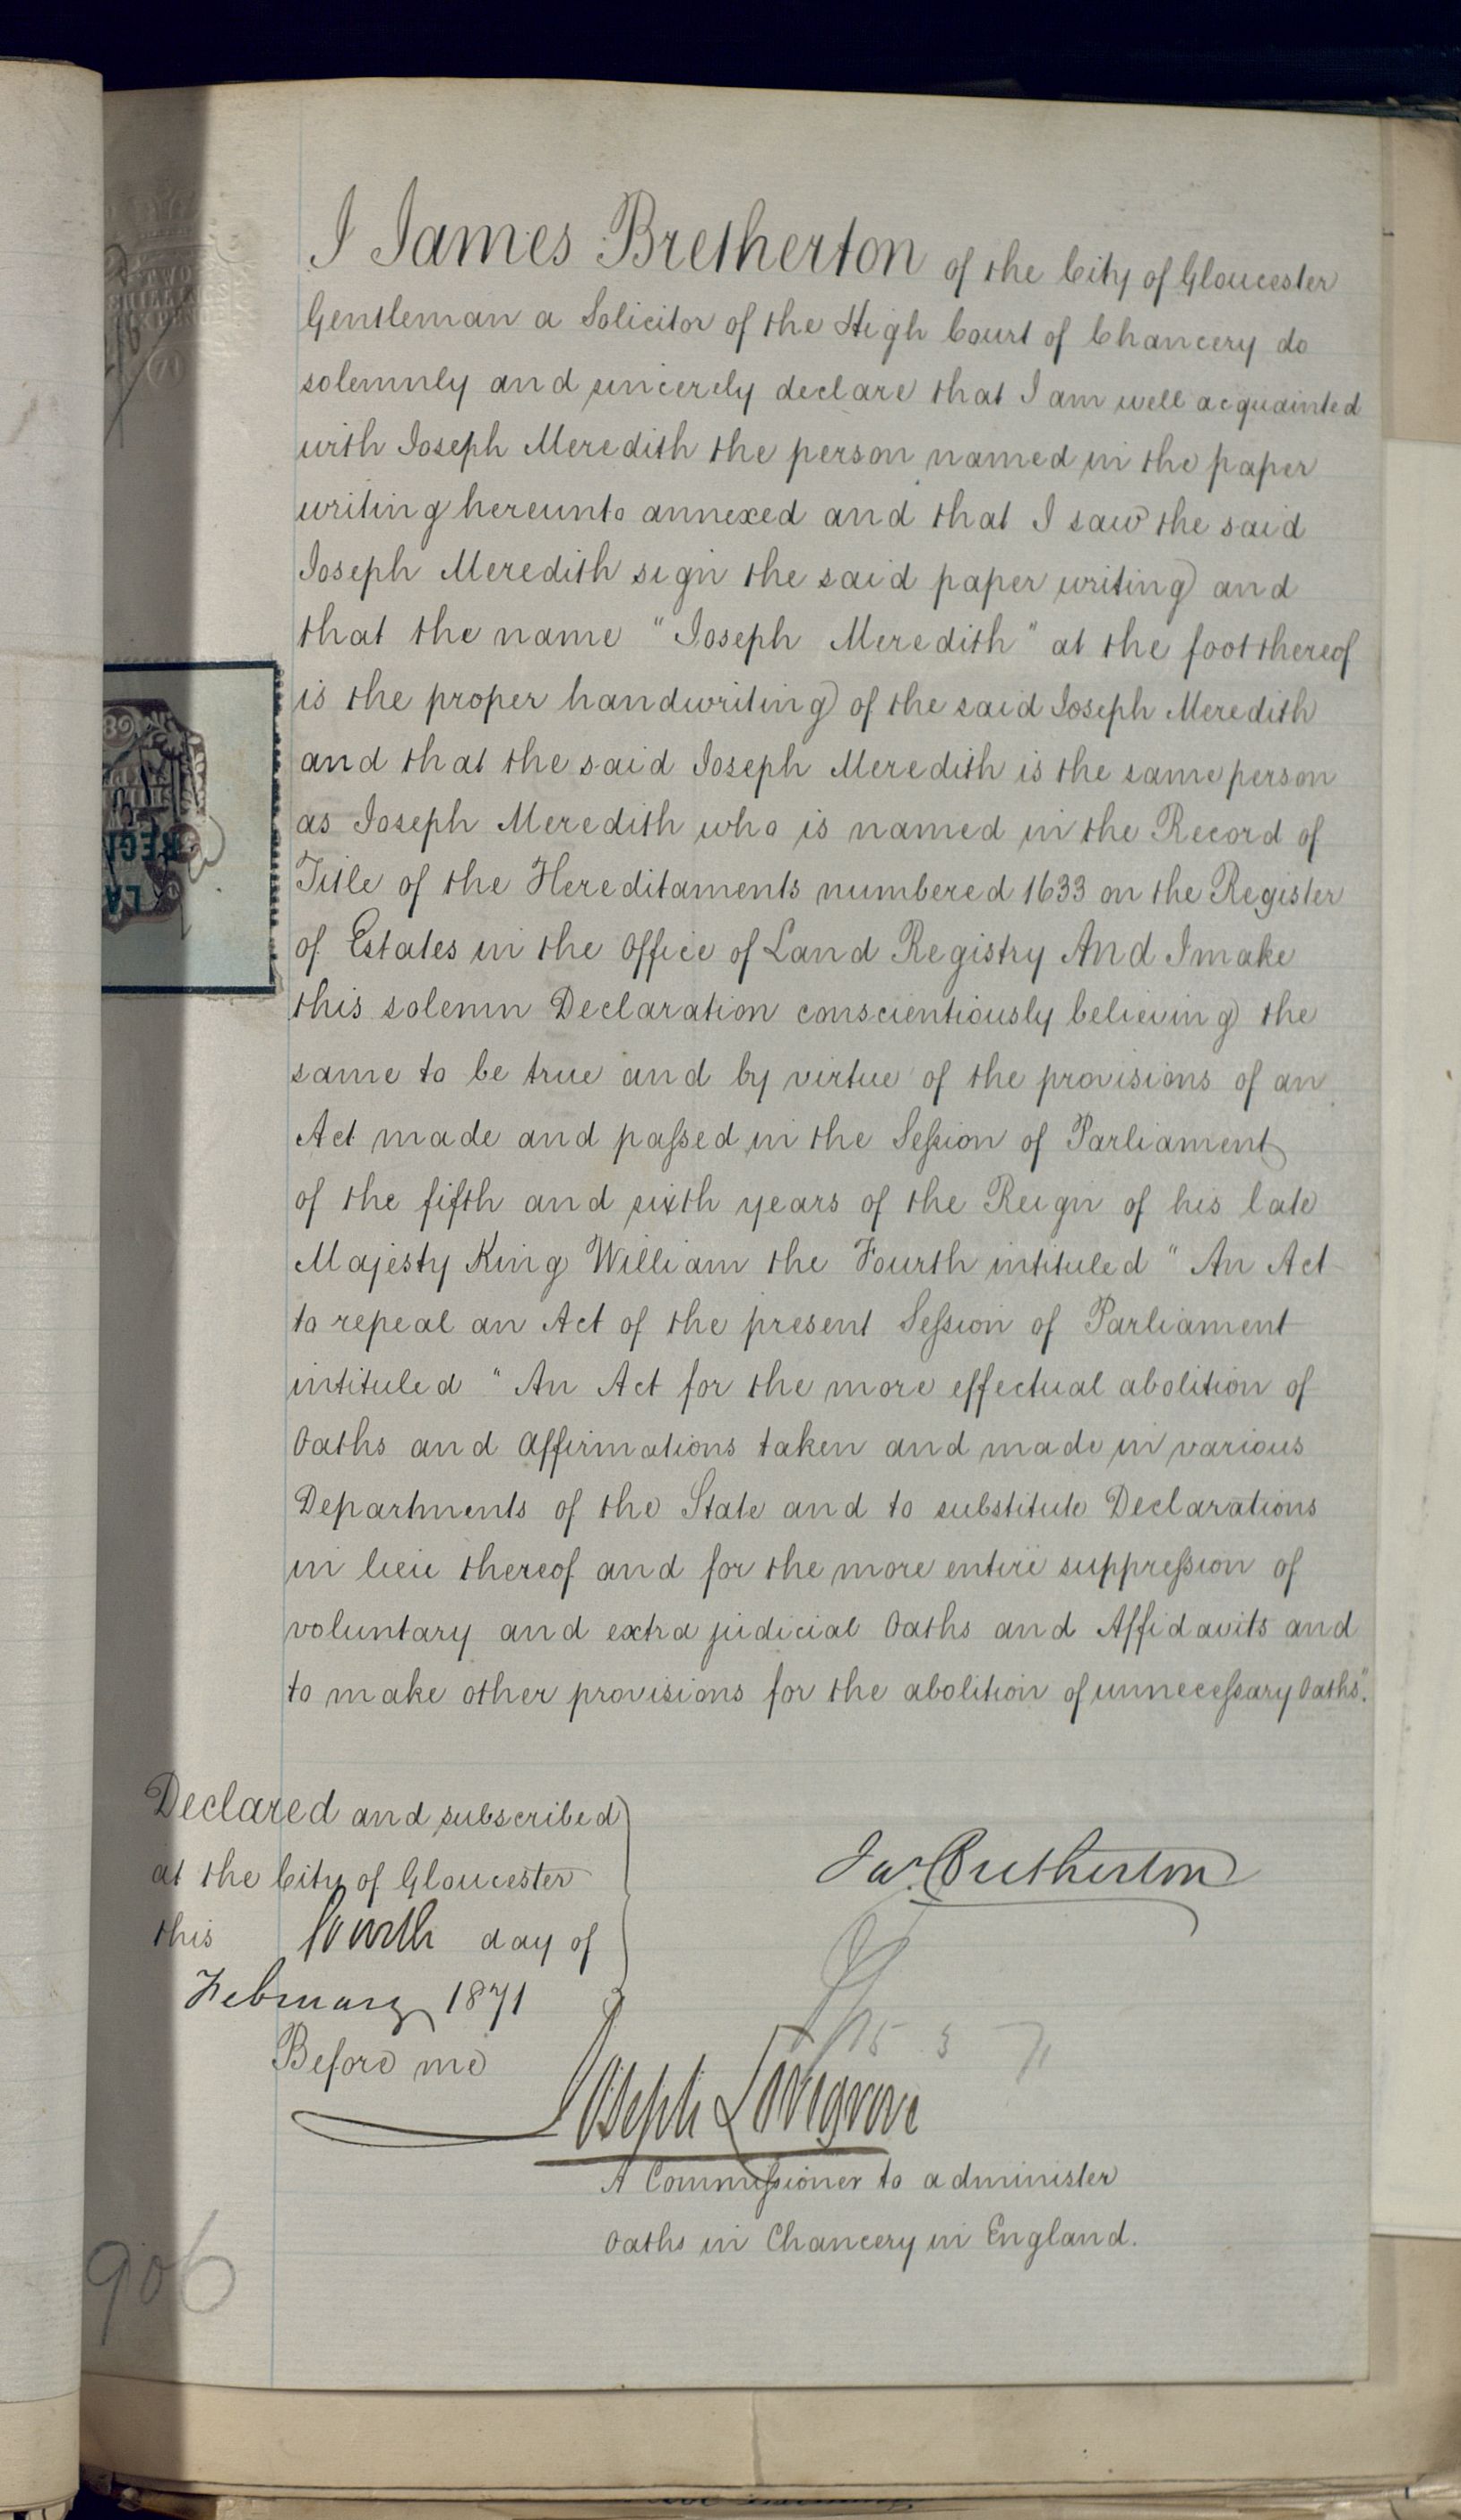 I James Bretherton of the City of Gloucester
Gentleman a Solicitor of the High Court of Chancery do
solemnly and sincerely declare that I am well acquainted
with Joseph Meredith the person named in the paper
writing hereunto annexed and that I saw the said
Joseph Meredith sign the said paper writing and
that the name "Joseph Meredith" at the foot thereof
is the proper handwriting of the said Joseph Meredith
and that the said Joseph Meredith is the same person
as Joseph Meredith who is named in the Record of
Title of the Hereditaments numbered 1633 on the Register
of Estates in the Office of Land Registry And I make
this solemn Declaration conscientiously believing the
same to be true and by virtue of the provisions of an
Act made and paſsed in the Seſsion of Parliament
of the fifth and sixth years of the Reign of his late
Majesty King William the Fourth intituled "An Act
to repeal an Act of the present Seſsion of Parliament
intituled "An Act for the more effectual abolition of
Oaths and Affirmations taken and made in various
Departments of the State and to substitute Declarations
in lieu thereof and for the more entire suppreſsion of
voluntary and extra judicial Oaths and Affidavits and
to make other provisions for the abolition of unneceſsary Oaths".
Declared and subscribed
at the City of Gloucester
this fourth day of
February 1871
Before me
Jas. Bretherton
15 3 71
Joseph Lovegrove
A Commiſsioner to administer
Oaths in Chancery in England.
906